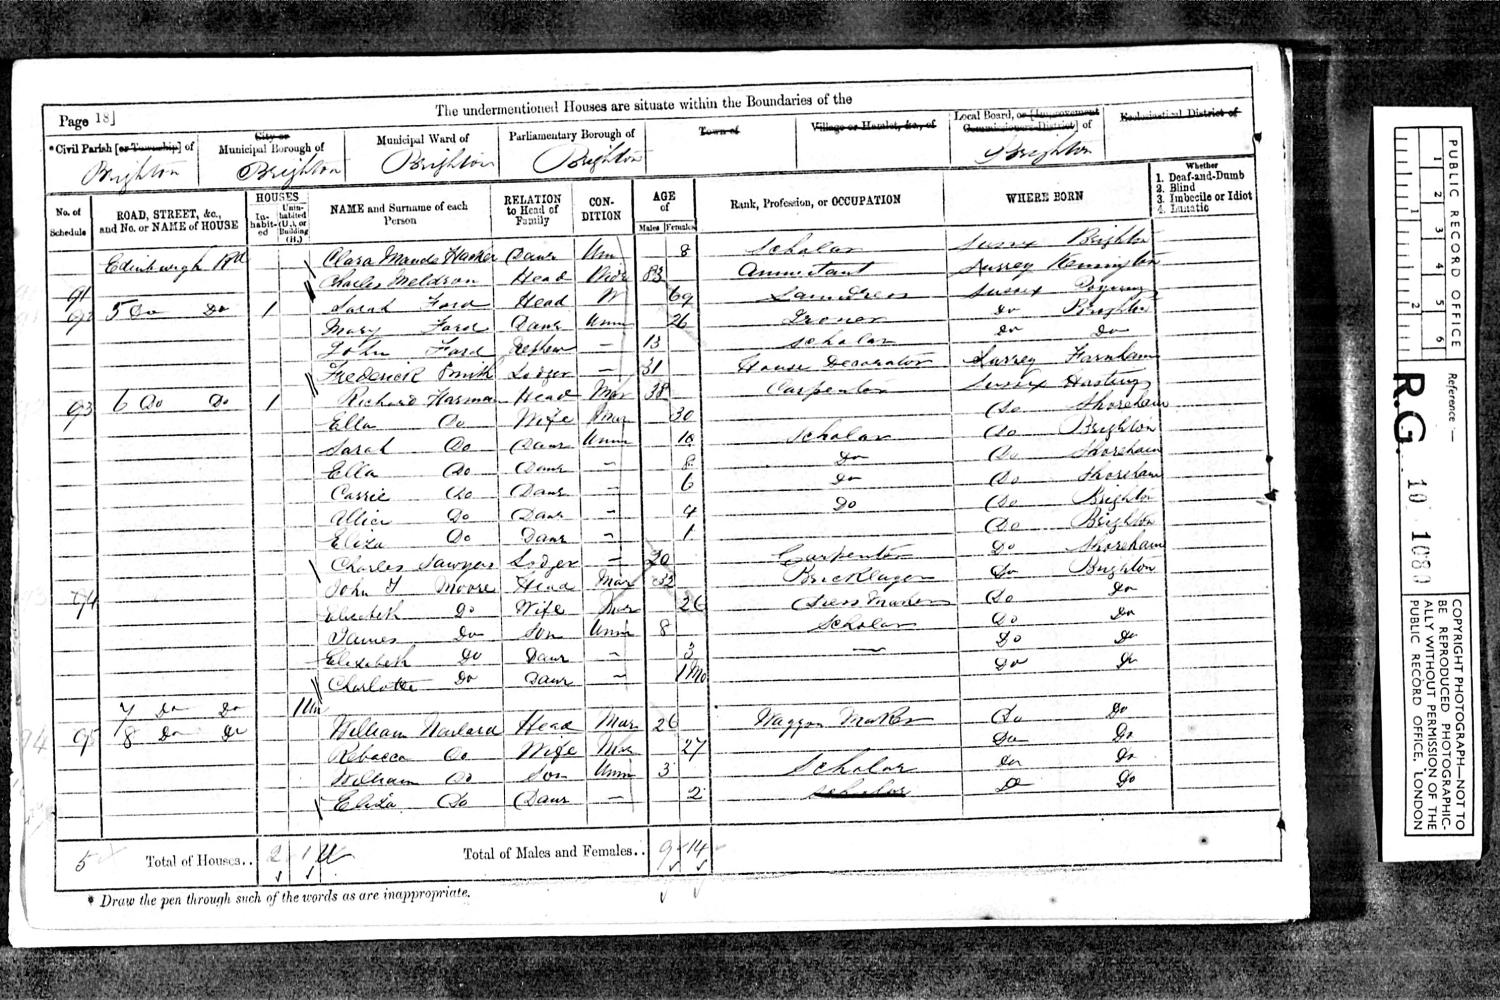 The undermentioned Houses are situate within the Boundaries of the
Page 18]
*Civil Parish [or Township] of
Brighton
City or Municipal Borough of
Brighton
Municipal Ward of
Brighton
Parliamentary Borough of
Brighton
Town of
Village or Hamlet, &c., of
Local Board, or [Improvement Commissioners District] of
Brighton
Ecclesiastical District of
No. of Schedule
ROAD, STREET, &c., and No. or NAME of HOUSE
HOUSES
In-habit-ed
Unin-habited (U.), or Building (B.)
NAME and Surname of each Person
RELATION to Head of Family
CON-DITION
AGE of
Males
Females
Rank, Profession, or OCCUPATION
WHERE BORN
Whether
1. Deaf-and-Dumb
2. Blind
3. Imbecile or Idiot
4. Lunatic
Edinburgh Rd Clara Maude Hacker Daur Unm 8 Scholar Sussex Brighton
91 Charles Meldron Head 83 Annuitant Surrey Kennington
92 5 Do Do 1 Sarah Ford Head W 69 Laundress Sussex
Mary Ford Daur Unm 26 Ironer Do Brighton
John Ford Nephew — 13 Scholar Do Do
Frederick Smith Lodger — 31 House Decorator Surrey Farnham
93 6 Do Do 1 Richard Harman Head Mar 38 Carpenter Sussex Hastings
Ella Do Wife Mar 30 Do Shoreham
Sarah Do Daur Unm 10 Scholar Do Brighton
Ella Do Daur — 8 Do Do Shoreham
Carrie Do Daur — 6 Do Do Shoreham
Alice Do Daur — 4 Do Do Brighton
Eliza Do Daur — 1 Do Brighton
Charles Sawyers Lodger — 20 Carpenter Do Shoreham
94 John T Moore Head Mar 32 Bricklayer Do Brighton
Elizabeth Do Wife Mar 26 Dress Maker Do Do
James Do Son Unm 8 Scholar Do Do
Elizabeth Do Daur — 3 — Do Do
Charlotte Do Daur — 1 Mo Do Do
7 Do Do 1 Un
95 8 Do Do William Head Mar 26 Waggon Maker Do Do
Rebecca Do Wife Mar 27 Do Do
William Do Son Unm 3 Scholar Do Do
Eliza Do Daur — 2 Scholar Do Do
5 Total of Houses.. 2 1 U Total of Males and Females.. 9 14
* Draw the pen through such of the words as are inappropriate.
PUBLIC RECORD OFFICE
1 2 3 4 5 6
1 2
Reference:—
R.G. 10 1089
COPYRIGHT PHOTOGRAPH—NOT TO BE REPRODUCED PHOTOGRAPHIC-ALLY WITHOUT PERMISSION OF THE PUBLIC RECORD OFFICE, LONDON